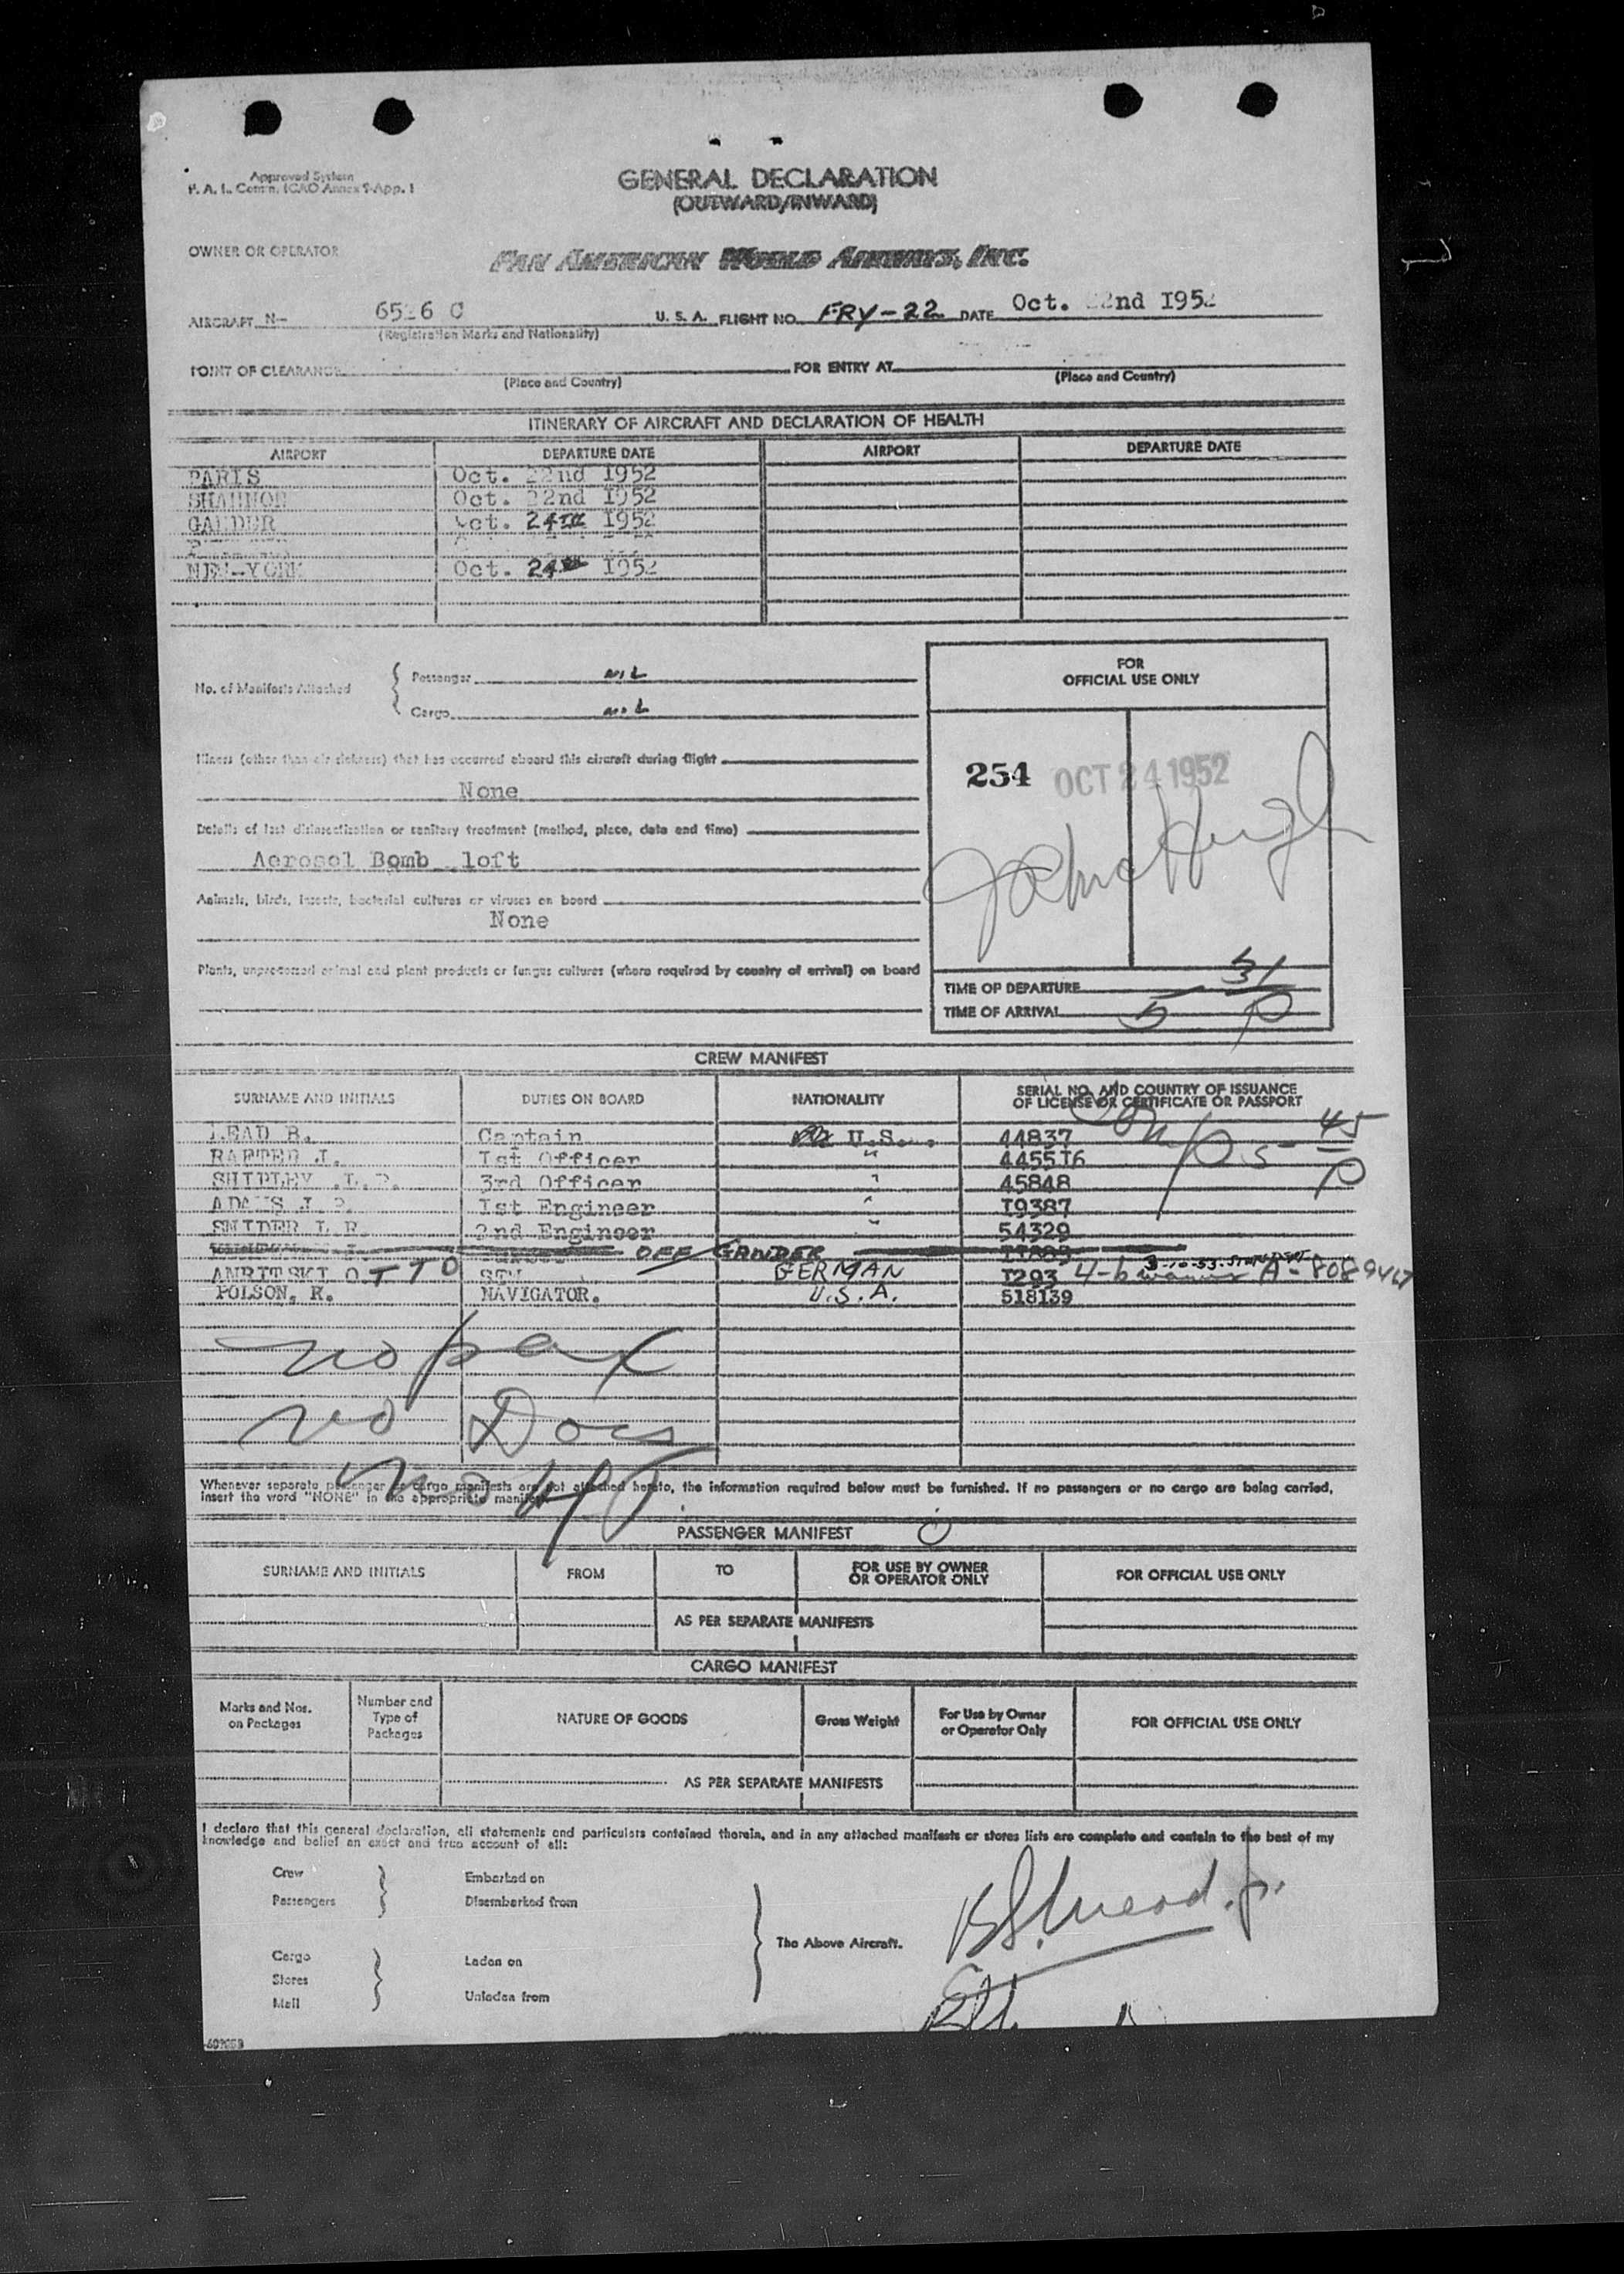 Approved System
F. A. L. Comm. ICAO Annex 9-App. 1
GENERAL DECLARATION
(OUTWARD/INWARD)
OWNER OR OPERATOR
PAN AMERICAN WORLD AIRWAYS, INC.
AIRCRAFT N- U. S. A. FLIGHT NO. FRY-22 DATE Oct. 22nd I952
(Registration Marks and Nationality)
POINT OF CLEARANCE FOR ENTRY AT
(Place and Country) (Place and Country)
ITINERARY OF AIRCRAFT AND DECLARATION OF HEALTH
AIRPORT DEPARTURE DATE AIRPORT DEPARTURE DATE
PARIS Oct. 22nd I952
SHANNON Oct. 22nd I952
GANDER Oct. 24TH I952
NEW-YORK Oct. 24TH I952
No. of Manifests Attached
Passenger NIL
Cargo NIL
FOR
OFFICIAL USE ONLY
Illness (other than air sickness) that has occurred aboard this aircraft during flight
None
254 OCT 24 1952
Details of last disinsectization or sanitary treatment (method, place, date and time)
Aerosol Bomb loft
Animals, birds, insects, bacterial cultures or viruses on board
None
Plants, unprocessed animal and plant products or fungus cultures (where required by country of arrival) on board
TIME OF DEPARTURE
TIME OF ARRIVAL
CREW MANIFEST
SURNAME AND INITIALS DUTIES ON BOARD NATIONALITY SERIAL NO. AND COUNTRY OF ISSUANCE
OF LICENSE OR CERTIFICATE OR PASSPORT
B. Captain U.S. 44837
J. Ist Officer " 4455I6
SHIPLEY 3rd Officer " 45848
ADAMS J. Ist Engineer " I9387
SNIDER L R. 2nd Engineer " 54329
OFF GANDER
OTTO GERMAN I293
POLSON, R. NAVIGATOR. U.S.A. 518139
no pax
no Docs
Whenever separate passenger or cargo manifests are not attached hereto, the information required below must be furnished. If no passengers or no cargo are being carried,
insert the word "NONE" in the appropriate manifest.
PASSENGER MANIFEST
SURNAME AND INITIALS FROM TO FOR USE BY OWNER
OR OPERATOR ONLY FOR OFFICIAL USE ONLY
AS PER SEPARATE MANIFESTS
CARGO MANIFEST
Marks and Nos.
on Packages Number and
Type of
Packages NATURE OF GOODS Gross Weight For Use by Owner
or Operator Only FOR OFFICIAL USE ONLY
AS PER SEPARATE MANIFESTS
I declare that this general declaration, all statements and particulars contained therein, and in any attached manifests or stores lists are complete and contain to the best of my
knowledge and belief an exact and true account of all:
Crew Embarked on
Passengers Disembarked from
The Above Aircraft.
Cargo Laden on
Stores
Mail Unladen from